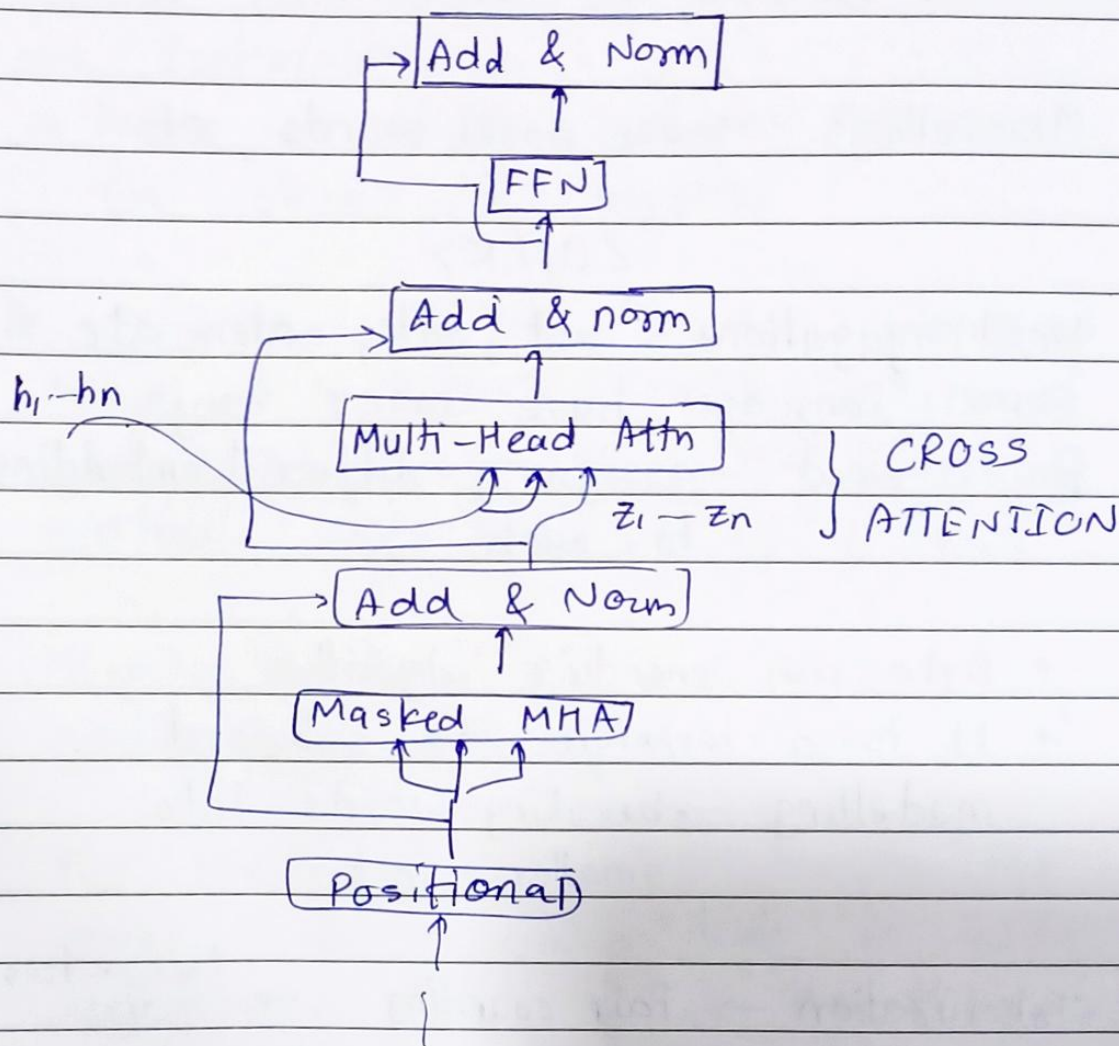 Add & Norm
FFN
Add & norm
h1--hn
Multi-Head Attn
CROSS
z1 — zn
ATTENTION
Add & Norm
Masked MHA
Positional